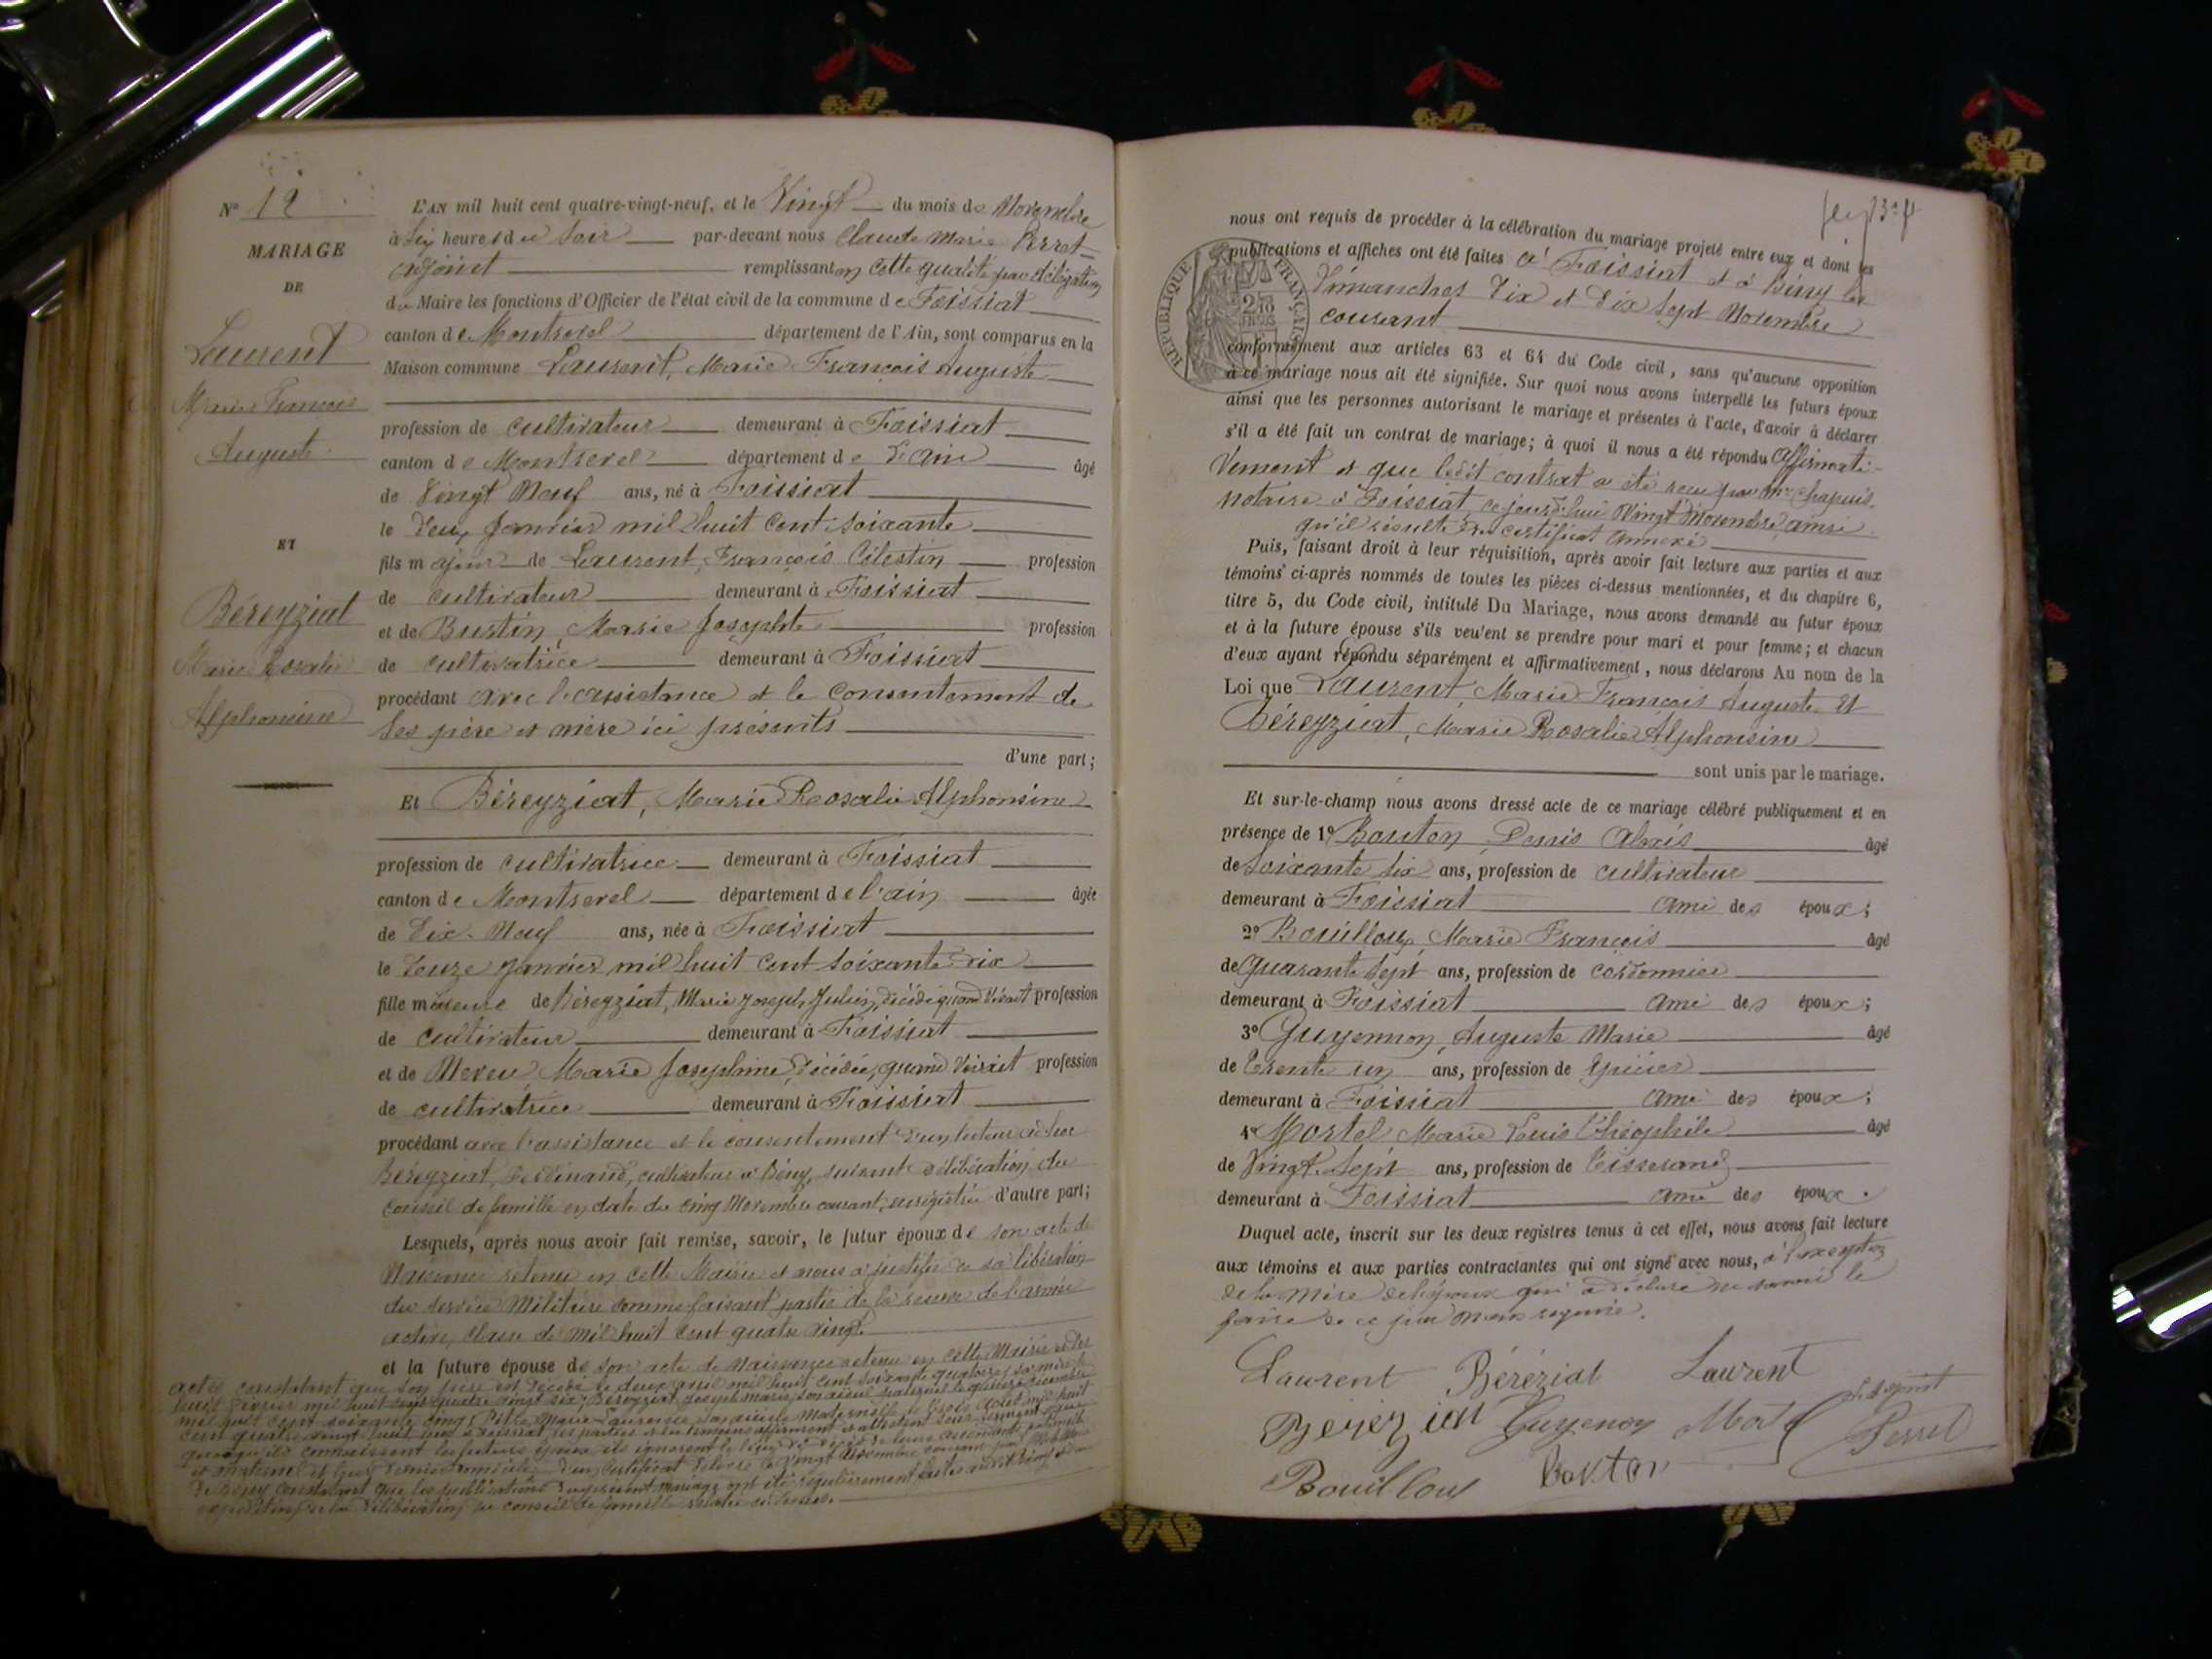 N° 12
MARIAGE
DE
Laurent
Marie François
Auguste
ET
Béreyziat
Marie Rosalie
Alphonsine
L'AN mil huit cent quatre-vingt-neuf, et le Vingt du mois de Novembre
à six heures du soir par-devant nous Claude Marie Perret
adjoint remplissant en cette qualité par délégation
du Maire les fonctions d'Officier de l'état civil de la commune de Foissiat
canton de Montrevel département de l'Ain, sont comparus en la
Maison commune Laurent, Marie François Auguste
profession de cultivateur demeurant à Foissiat
canton de Montrevel département de l'ain âgé
de Vingt Neuf ans, né à Foissiat
le deux Janvier mil huit cent soixante
fils majeur de Laurent, François Célestin profession
de cultivateur demeurant à Foissiat
et de Bustin, Marie Josephte profession
de cultivatrice demeurant à Foissiat
procédant avec l'assistance et le consentement de
ses père et mère ici présents
d'une part;
Et Béreyziat, Marie Rosalie Alphonsine
profession de cultivatrice demeurant à Foissiat
canton de Montrevel département de l'ain âgée
de Dix-Neuf ans, née à Foissiat
le Douze Janvier mil huit cent soixante dix
fille mineure de Béreyziat, Marie Joseph Julien, décédé quand vivait profession
de cultivateur demeurant à Foissiat
et de Neveu, Marie Joséphine, décédée, quand vivait profession
de cultivatrice demeurant à Foissiat
procédant avec l'assistance et le consentement d'un tuteur ad hoc
Béreyziat, Ferdinand, cultivateur à Bény, suivant délibération du
conseil de famille en date du cinq Novembre courant, enregistrée d'autre part;
Lesquels, après nous avoir fait remise, savoir, le futur époux de son acte de
Naissance retenu en cette Mairie et nous a justifié de sa libération
du service Militaire comme faisant partie de la réserve de l'armée
active, classe de mil huit cent quatre vingt
et la future épouse de son acte de Naissance retenu en cette Mairie et des
actes constatant que son père est décédé le deux avril mil huit cent soixante quatorze, sa mère le
huit février mil huit cent quatre vingt six; Béreyziat Joseph Marie, son aïeul paternel le quinze décembre
mil huit cent soixante cinq; Marie Laurence, son aïeule Maternelle le trois août mil huit
cent quatre vingt huit à Foissiat, les parties et les témoins affirment et attestent sous serment que
quoiqu'ils connaissent les futurs époux ils ignorent le lieu du décès de leurs ascendants paternels
et maternel et leur dernier domicile. d'un certificat délivré le vingt Novembre courant par
de Bény constatant que les publications du présent mariage ont été régulièrement faites
expédition de la délibération du conseil de famille
nous ont requis de procéder à la célébration du mariage projeté entre eux et dont les
publications et affiches ont été faites à Foissiat et à Bény les
Dimanches Dix et Dix Sept Novembre
courant
RÉPUBLIQUE FRANÇAISE
conformément aux articles 63 et 64 du Code civil, sans qu'aucune opposition
à ce mariage nous ait été signifiée. Sur quoi nous avons interpellé les futurs époux
ainsi que les personnes autorisant le mariage et présentes à l'acte, d'avoir à déclarer
s'il a été fait un contrat de mariage; à quoi il nous a été répondu affirmati-
vement et que ledit contrat a été reçu par Me Chapuis,
notaire à Foissiat, ce jourd'hui Vingt Novembre, ainsi
qu'il résulte du certificat annexé
Puis, faisant droit à leur réquisition, après avoir fait lecture aux parties et aux
témoins ci-après nommés de toutes les pièces ci-dessus mentionnées, et du chapitre 6,
titre 5, du Code civil, intitulé Du Mariage, nous avons demandé au futur époux
et à la future épouse s'ils veulent se prendre pour mari et pour femme; et chacun
d'eux ayant répondu séparément et affirmativement, nous déclarons Au nom de la
Loi que Laurent, Marie François Auguste et
Béreyziat, Marie Rosalie Alphonsine
sont unis par le mariage.
Et sur-le-champ nous avons dressé acte de ce mariage célébré publiquement et en
présence de 1° Bouton, Denis Alexis âgé
de Soixante six ans, profession de cultivateur
demeurant à Foissiat ami des époux;
2° Bouilloux, Marie François âgé
de quarante sept ans, profession de cordonnier
demeurant à Foissiat ami des époux;
3° Guyennon, Auguste Marie âgé
de Trente un ans, profession de épicier
demeurant à Foissiat ami des époux;
4° Mortel Marie Louis Théophile âgé
de Vingt Sept ans, profession de Tisserand
demeurant à Foissiat ami des époux.
Duquel acte, inscrit sur les deux registres tenus à cet effet, nous avons fait lecture
aux témoins et aux parties contractantes qui ont signé avec nous, à l'exception
de la mère de l'époux qui a déclaré ne savoir le
faire de ce par nous requise.
Laurent Bérézial Laurent
Bereziat Guyenon Mortel L'adjoint
Perret
Bouilloux Bouton